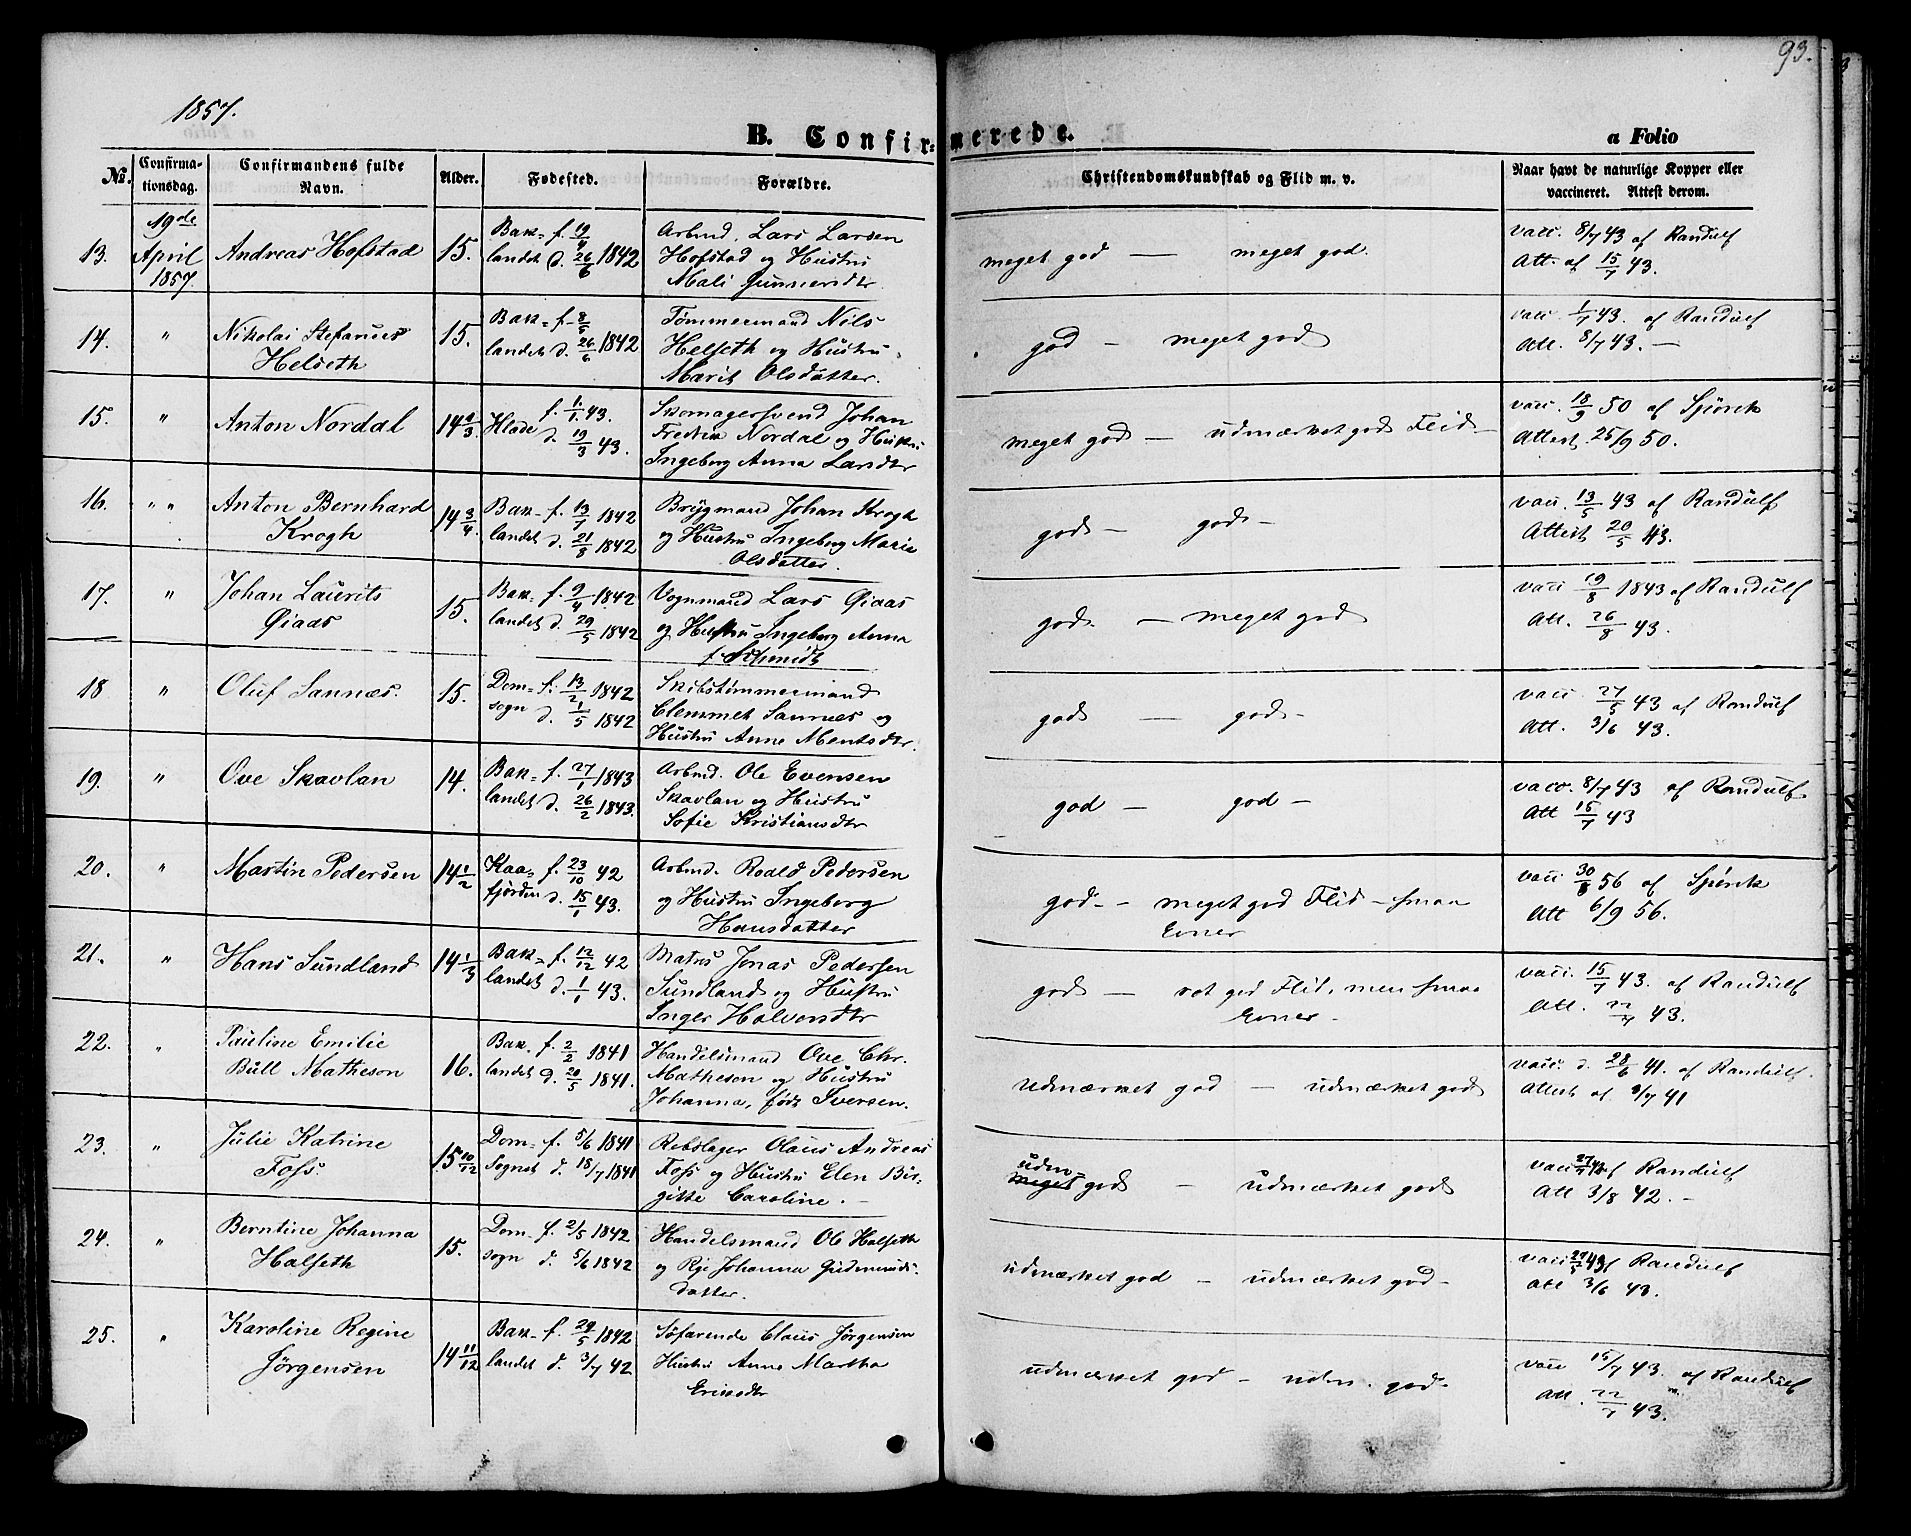 93.
1857.
B. Confirmerede.
a Folio
No.
Confirmationsdag.
Confirmandens fulde Navn.
Alder.
Fødested.
Forældre.
Christendomskundskab og Flid m. v.
Naar havt de naturlige Kopper eller vaccineret. Attest derom.
13.
19de April 1857.
Andreas Hofstad
15.
Bak= f. 19/4
landet d. 26/6 1842
Arbmd. Lars Larsen
Hofstad og Hustru
Mali Gunnersdtr.
meget god — meget god.
vacc. 8/7 43 af Randulf
Att. af 15/7 43.
14.
"
Nikolai Stefanus
Helseth
15.
Bak= f. 8/5
landet d. 26/6 1842
Tømmermand Nils
Helseth og Hustru
Marit Olsdatter.
god — meget god
vacc. 1/7 43. af Randulf
Att. 8/7 43. —
15.
"
Anton Nordal
14 1/3
Hlade f. 1/1 43.
d. 19/3 43.
Skomagersvend Johan
Fredrik Nordal og Hustru
Ingeborg Anna Larsdtr
meget god — udmærket god Flid —
vacc. 18/9 50 af Spørck
Attest. 25/9 50.
16.
" "
Anton Bernhard
Krogh
14 3/4
Bak= f. 13/7 1842
landet d. 21/8 1842
Brygmand Johan Krogh
og Hustru Ingeborg Marie
Olsdatter.
god — god —
vacc. 13/5 43 af Randulf
Attest 20/5 43.
17.
"
Johan Laurits
Øiaas
15.
Bak= f. 9/4 1842
landet d. 29/5 1842
Vognmand Lars Øiaas
og Hustru Ingeborg Anna
f. Schmidt
god. — meget god
vacc 19/8 1843 af Randulf
Att. 26/8 43.
18
"
Oluf Sannæs.
15.
Dom= f. 13/2 1842
sogn d. 1/5 1842
Skibstømmermand
Clemmet Sannæs og
Hustru Anne Mentsdtr.
god — god —
vacc. 27/5 43 af Randulf
Att. 3/6 43.
19.
"
Ove Skavlan
14.
Bak= f. 27/1 1843
landet d. 26/2 1843.
Arbmd. Ole Evensen
Skavlan og Hustru
Sofie Kristiansdtr
god — god —
vacc. 8/7 43 af Randulf
Att 15/7 43
20.
"
Martin Pedersen
14 1/2
Kaa= f. 23/10 42
fjorden d. 15/1 43.
Arbmd. Roald Pedersen
og Hustru Ingeborg
Hansdatter
god — meget god Flid — smaa
Evner
vacc 30/8 56 af Spørck
Att 6/9 56.
21.
"
Hans Sundland
14 1/3
Bak= f. 12/12 42
landet d. 1/1 43.
Matrs Jonas Pedersen
Sundland og Hustru
Inger Halvorsdtr
god — vet god Flid, men smaa
Evner —
vacc. 15/7 43. af Randulf
Att. 22/7 43.
22.
"
Pauline Emilie
Bull Matheson
16.
Bak. f. 2/2 1841
landet d. 20/5 1841.
Handelsmand Ove Chr.
Matheson og Hustru
Johanna, født Iversen.
udmærket god — udmærket god
vacc. d. 28/6 41. af Randulf.
Attest af. 3/7 41
23.
"
Julie Katrine
Foss.
15 10/12
Dom= f. 5/6 1841
Sognet d. 18/7 1841
Rebslager Olaus Andreas
Foss og Hustru Elen Bir-
gitte Caroline. —
udm=
meget god — udmærket god
vacc 27/7 42 af Randulf
Att 3/8 42. —
24.
"
Berntine Johanna
Halseth
15.
Dom= f. 2/5 1842
sogn d. 5/6 1842
Handelsmand Ole Halseth
og Pige Johanna Gudmunds-
datter.
udmærket god — udmærket god —
vacc 27/5 43 af Randulf
Att 3/6 43.
25.
"
Karoline Regine
Jørgensen
14 11/12
Bak= f. 29/5 1842
landet d. 3/7 42
Søfarende Claus Jørgensen
Hustru Anne Martha
Eriksdtr
udmærket god — udm. god —
vacc 15/7 43. af Randulf
Att. 22/7 43.